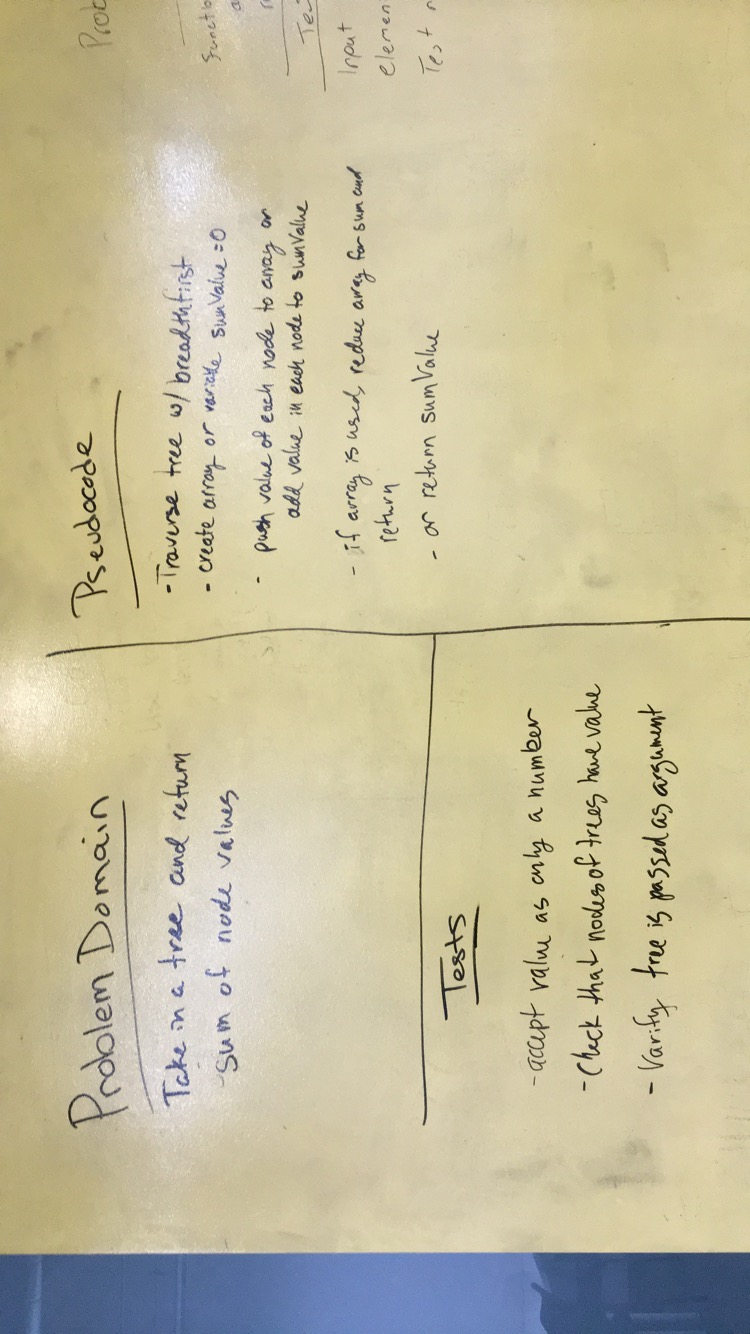 Problem Domain
Take in a tree and return
- sum of node values
Tests
- accept value as only a number
- Check that nodes of trees have value
- Varify tree is passed as argument
Pseudocode
- Traverse tree w/ breadthfirst
- create array or variable sumValue = 0
- push value of each node to array or
add value in each node to sumValue
- if array is used, reduce array for sum and
return
- or return sumValue
Prob
Input
elemen
Test